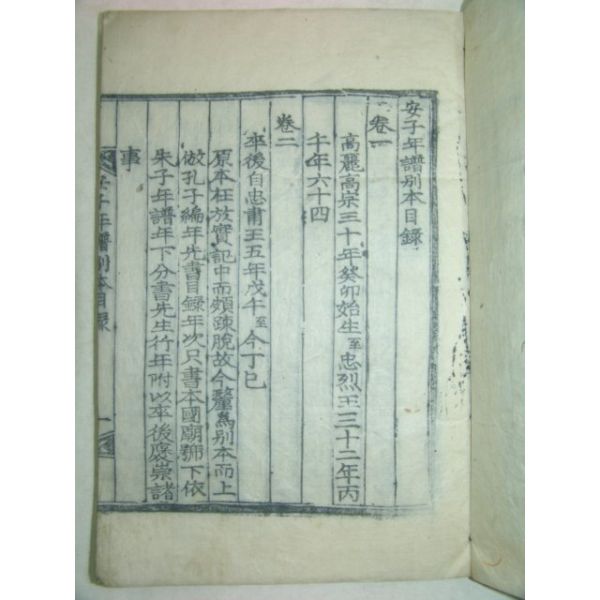 安子年譜別本目錄
卷一
高麗高宗三十年癸卯始生至忠烈王三十二年丙
午年六十四
卷二
卒後自忠肅王五年戊午至今丁巳
原本在於實記中而頗疎脫故今釐爲別本而上
倣孔子編年先書目録年次只書本國廟號下依
朱子年譜年下分書先生行年附以卒後褒崇諸
事
安子年譜別本目錄
一